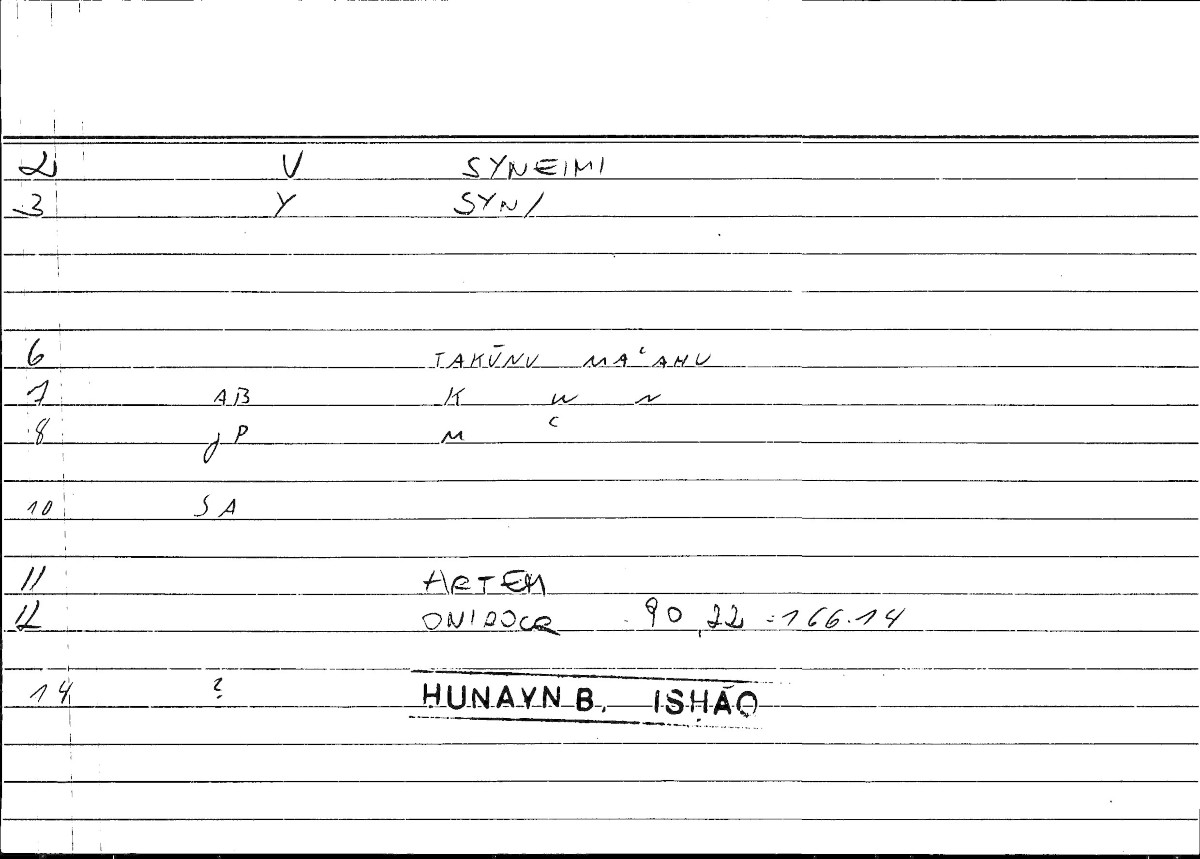 2 V SYNEIMI
3 Y SYN/
6 TAKŪNU MAʿAHU
7 AB K W N
8 JP M ʿ
10 SA
11 ARTEM
12 ONIDOCR 90,22 = 166.14
14 ? HUNAYN B. ISḤĀQ